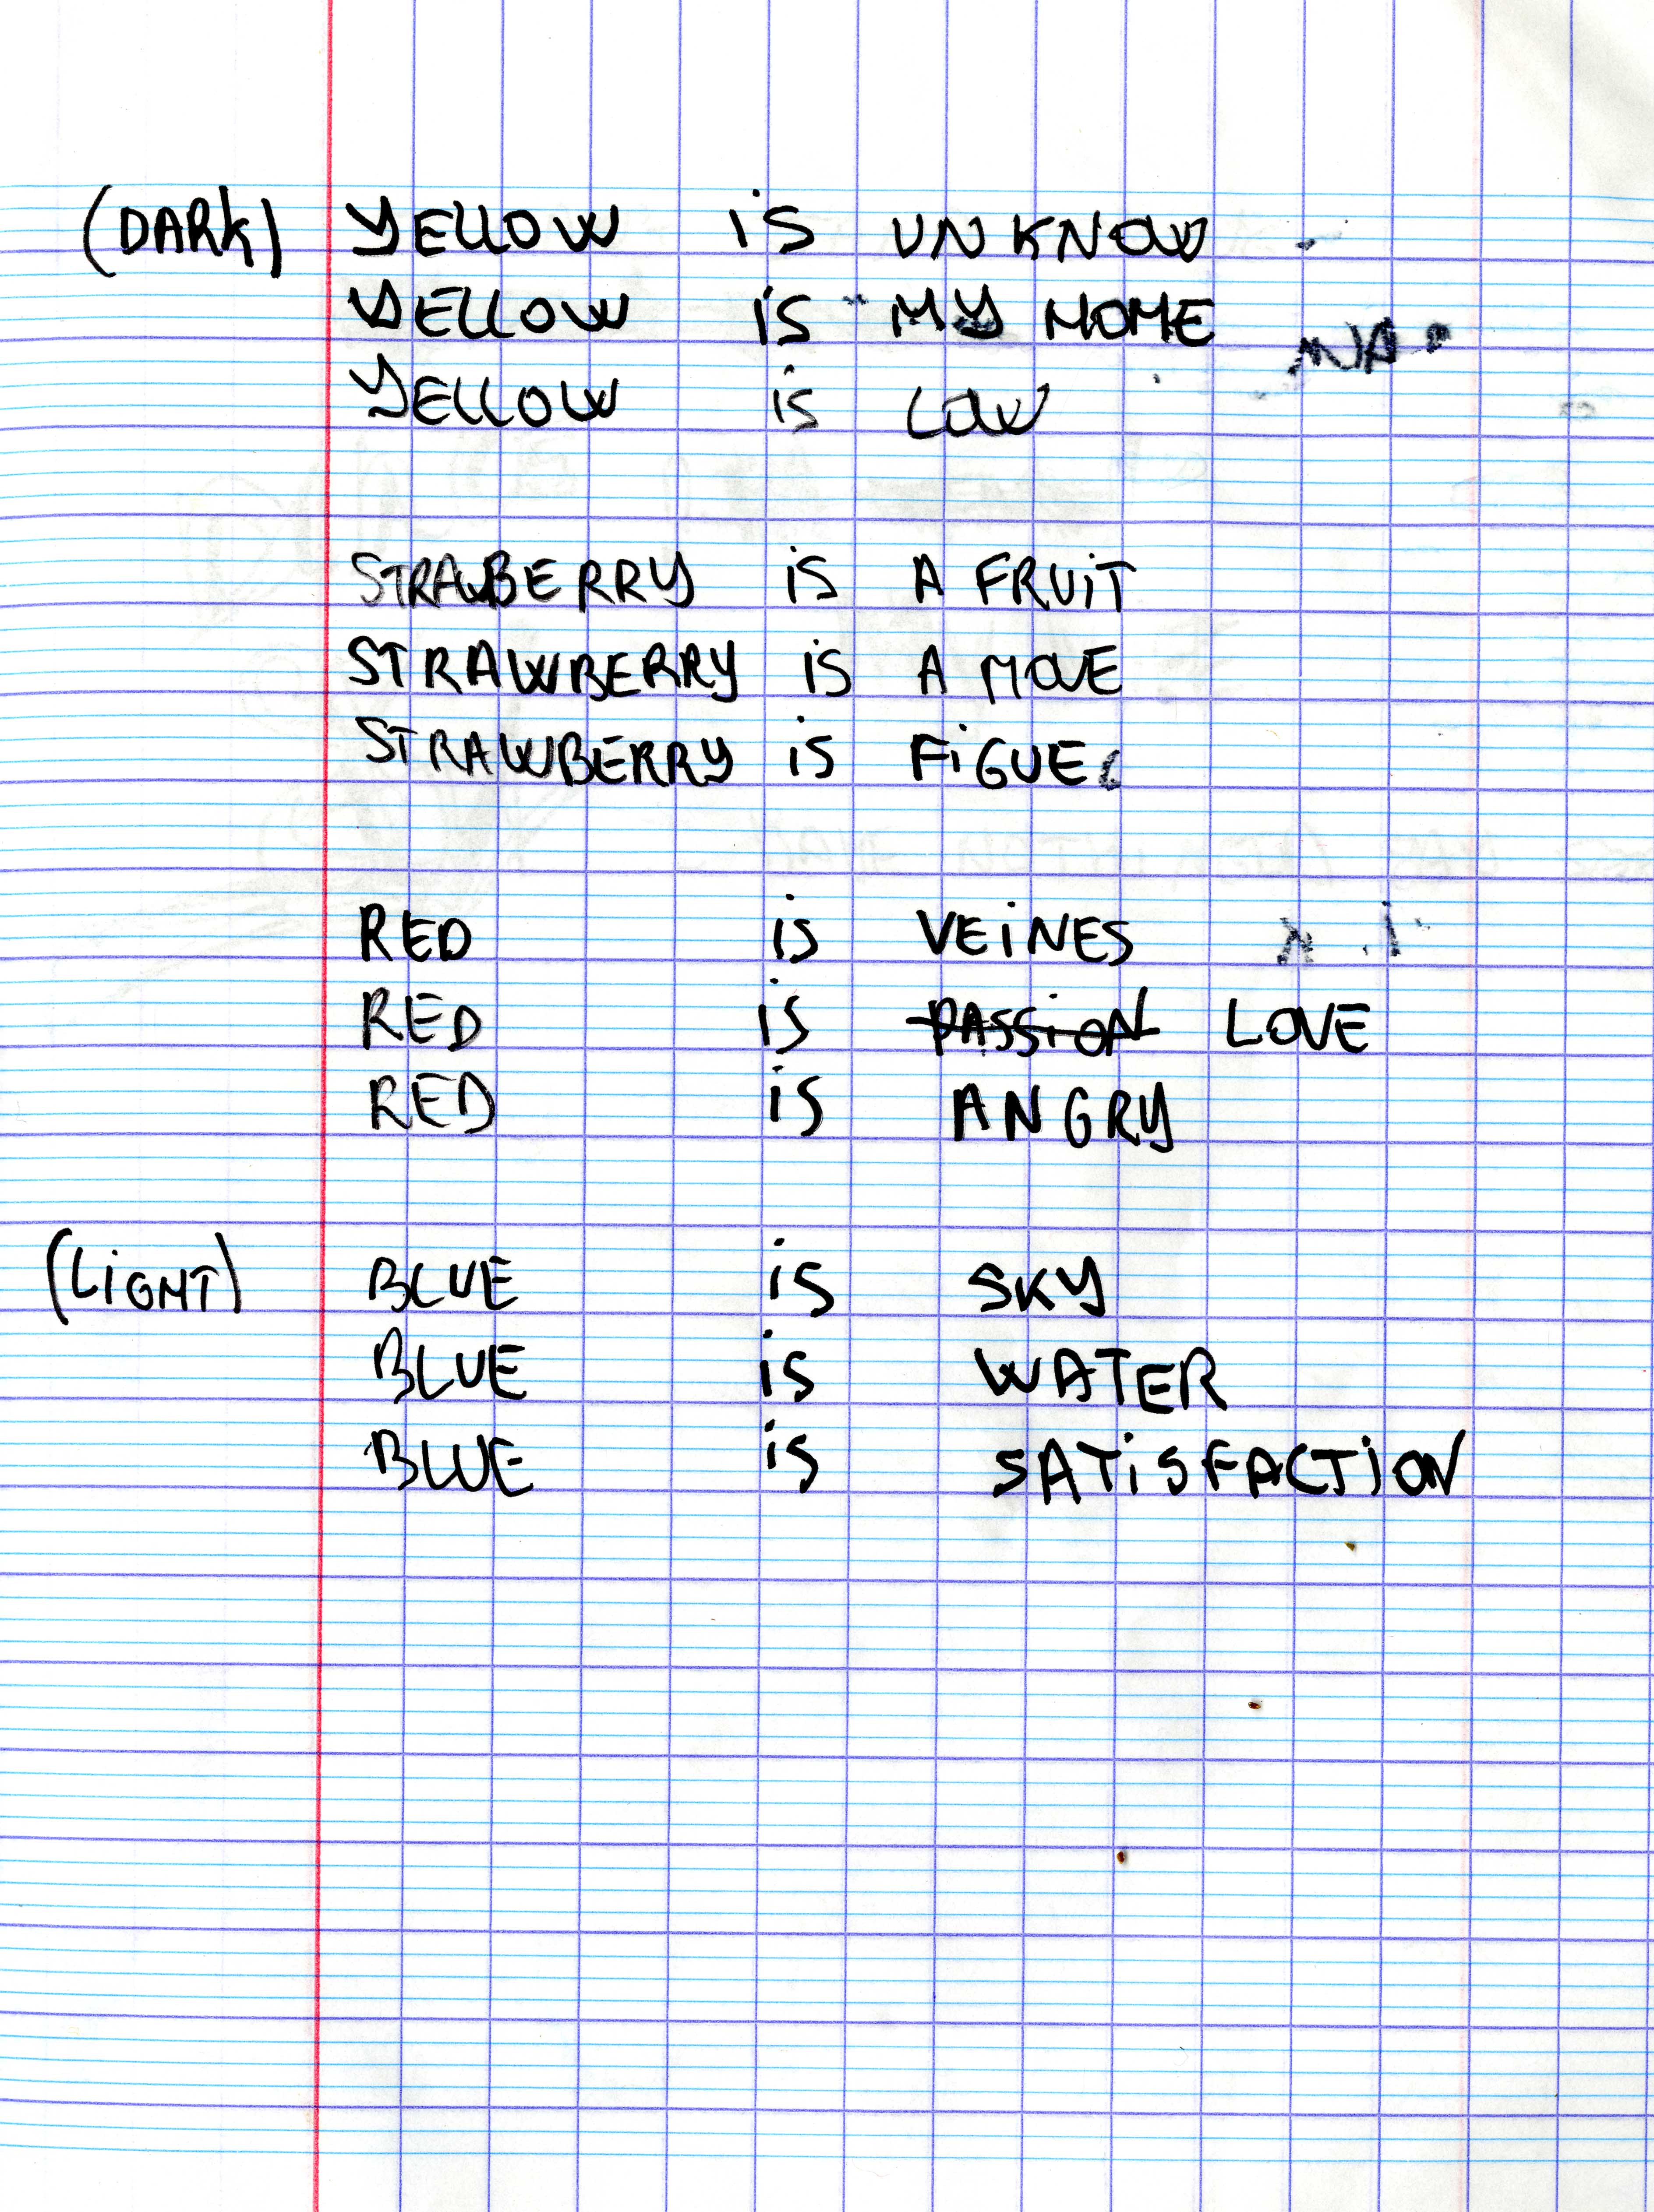 (DARK) YELLOW is UNKNOW
YELLOW is MY HOME
YELLOW is LOW
STRAWBERRY is A FRUiT
STRAWBERRY is A MOVE
STRAWBERRY is FiGUE
RED is VEiNES
RED is PASSiON LOVE
RED is ANGRY
(LiGHT) BLUE is SKY
BLUE is WATER
BLUE is SATiSFACTiON